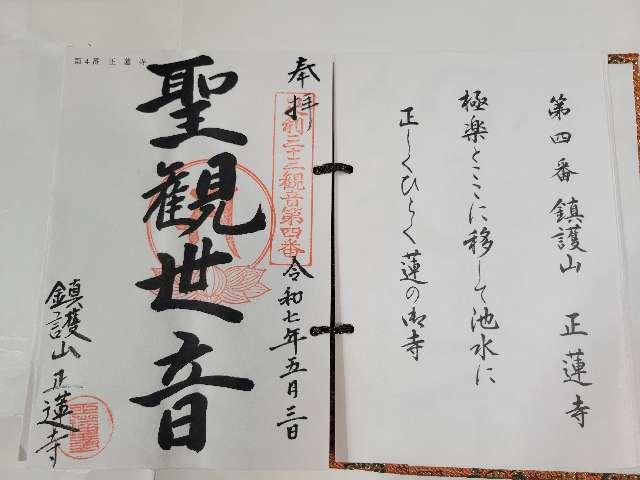 第四番 鎮護山 正蓮寺
極楽をここに移して池水に
正しくひらく蓮の御寺
第4番 正蓮寺
奉拝
足利三十三観音第四番
令和七年五月三日
聖観世音
鎮護山 正蓮寺